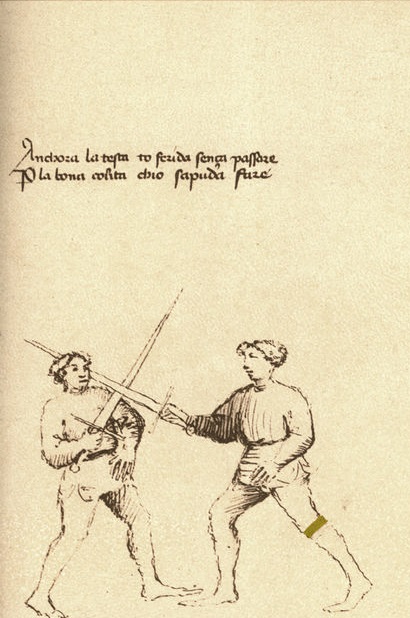 Anchora la testa to ferida sença passare
P la bona coḃta chio sapuda fare